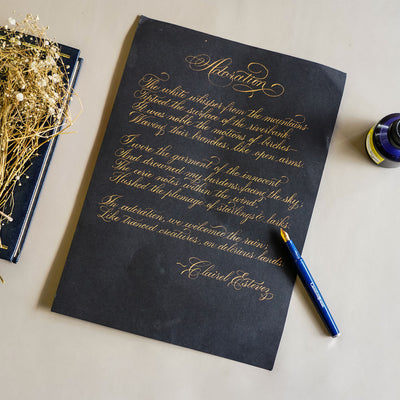 Adoration
The white whisper from the mountains
the surface of the riverbank
was noble the motions of birches
Waving their branches, like open arms.
I wore the garment of the innocent
And drowned my burdens facing the sky,
The eerie notes within the wind
I the plumage of starlings & larks.
In adoration, we welcome the rain,
Like tranced creatures, on delirious lands.
~Clairel Estevez